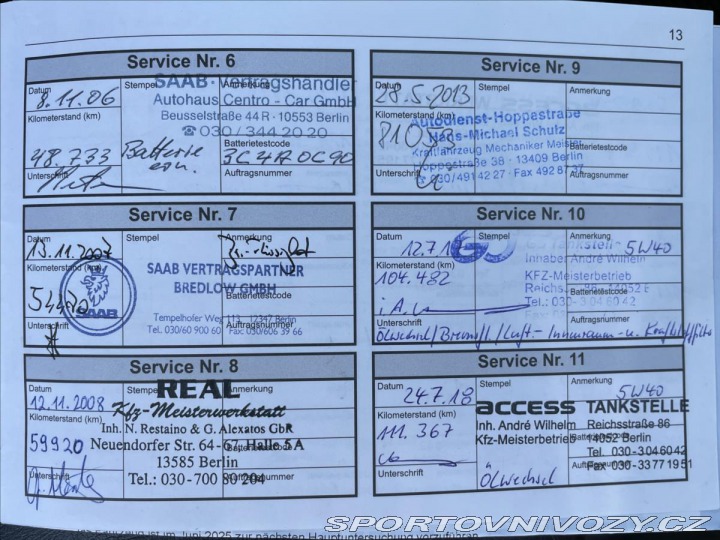 13
Service Nr. 6
Datum
8.11.06
Stempel
Anmerkung
SAAB - Vertragshändler
Autohaus Centro - Car GmbH
Beusselstraße 44 R · 10553 Berlin
☎ 030 / 344 20 20
Kilometerstand (km)
48.733
Batterie
ern.
Batterietestcode
3C4R0C90
Unterschrift
Auftragsnummer
Service Nr. 7
Datum
13.11.2007
Stempel
Anmerkung
Kilometerstand (km)
SAAB
SAAB VERTRAGSPARTNER
BREDLOW GMBH
Batterietestcode
Tempelhofer Weg 113, 12347 Berlin
Tel. 030/60 900 60 Fax: 030/606 39 66
Unterschrift
Auftragsnummer
Service Nr. 8
Datum
12.11.2008
Stempel
Anmerkung
REAL
Kfz-Meisterwerkstatt
Inh. N. Restaino & G. Alexatos GbR
Neuendorfer Str. 64 - 67, Halle 5 A
13585 Berlin
Tel.: 030 - 700 80 204
Kilometerstand (km)
59920
Batterietestcode
Unterschrift
Auftragsnummer
Service Nr. 9
Datum
28.5.2013
Stempel
Anmerkung
Autodienst-Hoppestraße
Hans-Michael Schulz
Kraftfahrzeug Mechaniker Meister
Hoppestraße 38 · 13409 Berlin
030/491 42 27 · Fax 492 87 37
Kilometerstand (km)
Batterietestcode
Unterschrift
Auftragsnummer
Service Nr. 10
Datum
Stempel
Anmerkung
5W40
Tankstelle
Inhaber André Wilhelm
KFZ-Meisterbetrieb
Tel.: 030-3 04 60 42
Kilometerstand (km)
104.482
Batterietestcode
i.A.
Unterschrift
Auftragsnummer
Ölwechsel/Bremsfl/Luft.-Innenraum-u. Kraftstofffilter
Service Nr. 11
Datum
24.7.18
Stempel
Anmerkung
5W40
access TANKSTELLE
Inh. André Wilhelm Reichsstraße 86
Kfz-Meisterbetrieb 14052 Berlin
Tel.: 030-3 04 60 42
Fax 030-33 77 19 51
Kilometerstand (km)
111.367
Batterietestcode
Unterschrift
Auftragsnummer
Ölwechsel
ist im Juni 2025 zur nächsten Hauptuntersuchung vorzuführen
SPORTOVNIVOZY.CZ